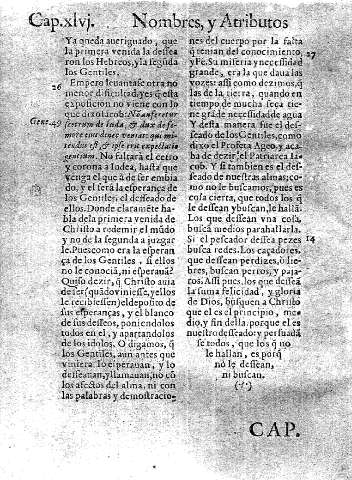 Cap.xlvj. Nombres, y Atributos
Ya queda aueriguado, que
la primera venida la dessea
ron los Hebreos, y la segũda
los Gentiles.
26
Empero leuantase otra no
menor dificultad, y es q̃ esta
exposicion no viene con lo
que dixo Iacob: Nõ auferetur
Gene.49
sceptrum de Iuda, & dux de fe-
more eius donec veniat qui mi-
tendus est, & ipse erit expectatio
gentium. No faltarà el cetro
y corona a Iudea, hasta que
venga el que à de ser embia
do, y el serà la esperança de
los Gentiles: el desseado de
ellos. Donde claramẽte ha-
bla dela primera venida de
Christo a redemir el mũdo
y no de la segunda a juzgar
le. Pues como era la esperan
ça de los Gentiles, si ellos
no le conociã, ni esperauã?
Quiso dezir, q̃ Christo auia
de ser (quãdo viniesse, y ellos
le recibiessen) el deposito de
sus esperanças, y el blanco
de sus desseos, poniendolos
todos en el, y apartandolos
de los idolos. O digamos, q̃
los Gentiles, aun antes que
viniera lo esperauan, y lo
desseauan, y llamauan, no cõ
los afectos del alma, ni con
las palabras y demostracio-
nes del cuerpo por la falta
q̃ tenian del conocimiento,
27
y Fe. Su miseria y necessidad
grande, era la que daua las
vozes: assi como dezimos, q̃
las de la tierra, quando en
tiempo de mucha seca tie-
ne grãde necessidad de agua
Y desta manera fue el des-
seado de los Gentiles, como
dixo el Profeta Ageo, y aca
ba de dezir, el Patriarca Ia-
cob. Y si tambien es el des-
seado de nuestras almas; co-
mo no le buscamos, pues es
cosa cierta, que todos los q̃
le dessean y buscan, le hallã.
Los que dessean vna cosa,
buscã medios para hallarla.
Si el pescador dessea pezes
14
busca redes. Los caçadores,
que dessean perdizes, ò lie-
bres, buscan perros, y paja-
ros. Assi pues, los que desseã
la suma felicidad, y gloria
de Dios, busquen a Christo
que el es el principio, me-
dio, y fin della, porque el es
nuestro desseado: y persuadã
se todos, que los q̃ no
le hallan, es porq̃
no le dessean,
ni buscan.
CAP.